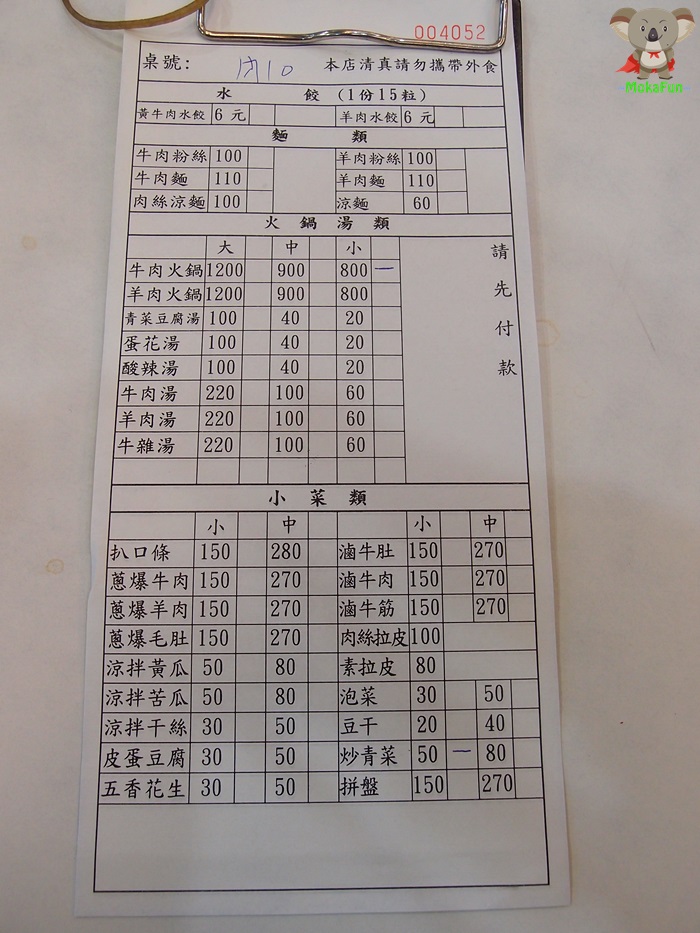 004052
MokaFun
桌號: 內10 本店清真請勿攜帶外食
水 餃 (1份15粒)
黃牛肉水餃 6 元 羊肉水餃 6 元
麵 類
牛肉粉絲 100 羊肉粉絲 100
牛肉麵 110 羊肉麵 110
肉絲涼麵 100 涼麵 60
火 鍋 湯 類
大 中 小
牛肉火鍋 1200 900 800 一
羊肉火鍋 1200 900 800
青菜豆腐湯 100 40 20
蛋花湯 100 40 20
酸辣湯 100 40 20
牛肉湯 220 100 60
羊肉湯 220 100 60
牛雜湯 220 100 60
請先付款
小 菜 類
小 中 小 中
扒口條 150 280 滷牛肚 150 270
蔥爆牛肉 150 270 滷牛肉 150 270
蔥爆羊肉 150 270 滷牛筋 150 270
蔥爆毛肚 150 270 肉絲拉皮 100
涼拌黃瓜 50 80 素拉皮 80
涼拌苦瓜 50 80 泡菜 30 50
涼拌干絲 30 50 豆干 20 40
皮蛋豆腐 30 50 炒青菜 50 一 80
五香花生 30 50 拼盤 150 270